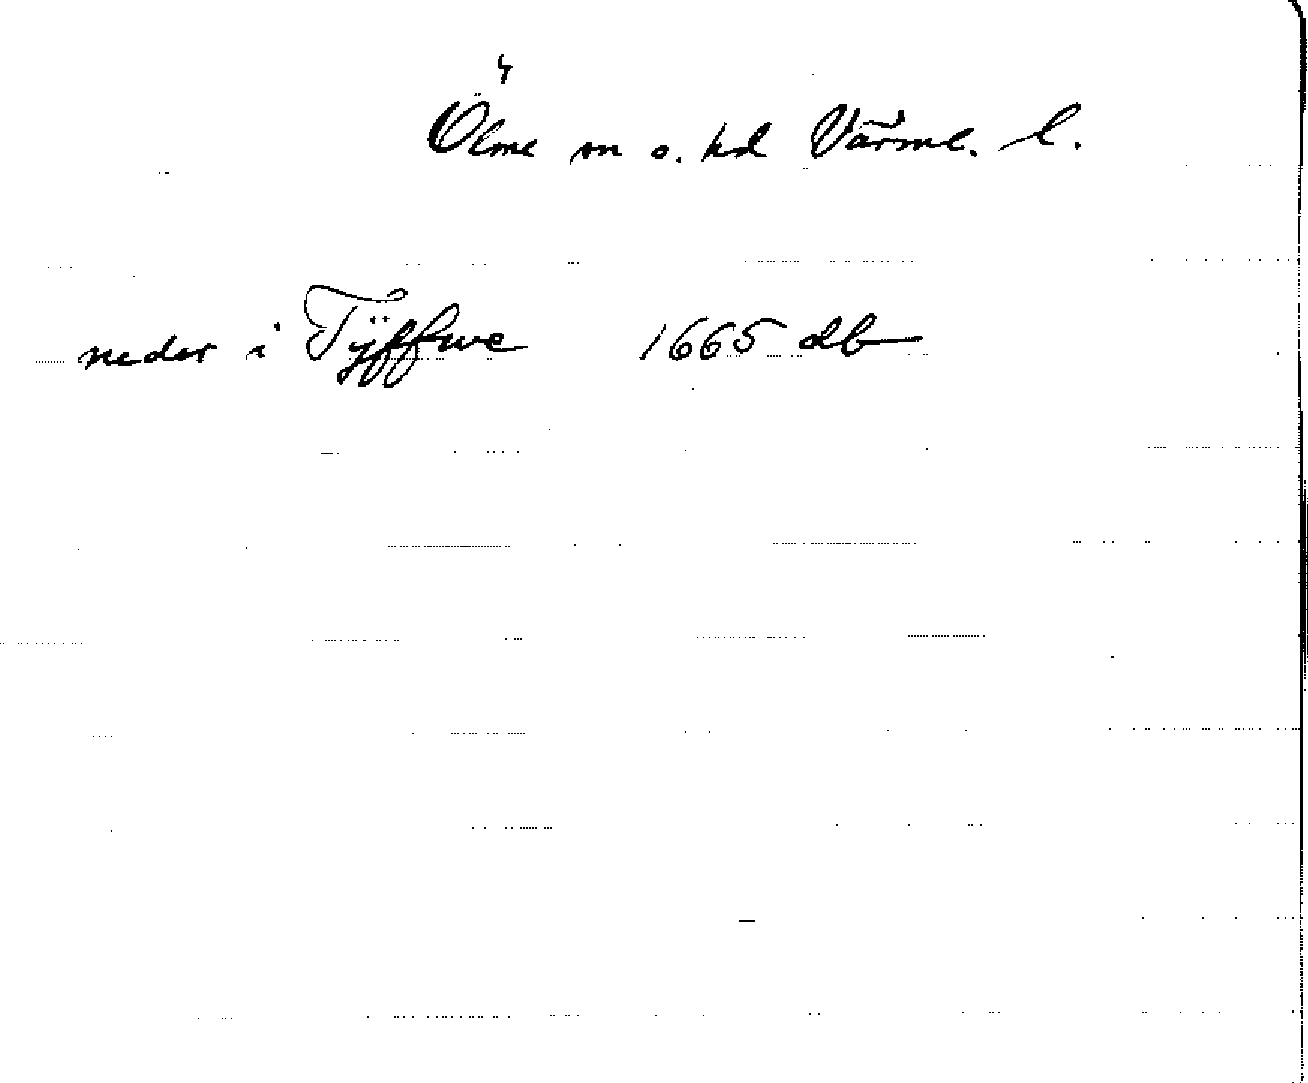 4
Ölme sn o. hd Värml. l.
neder i Tÿffwe 1665 db